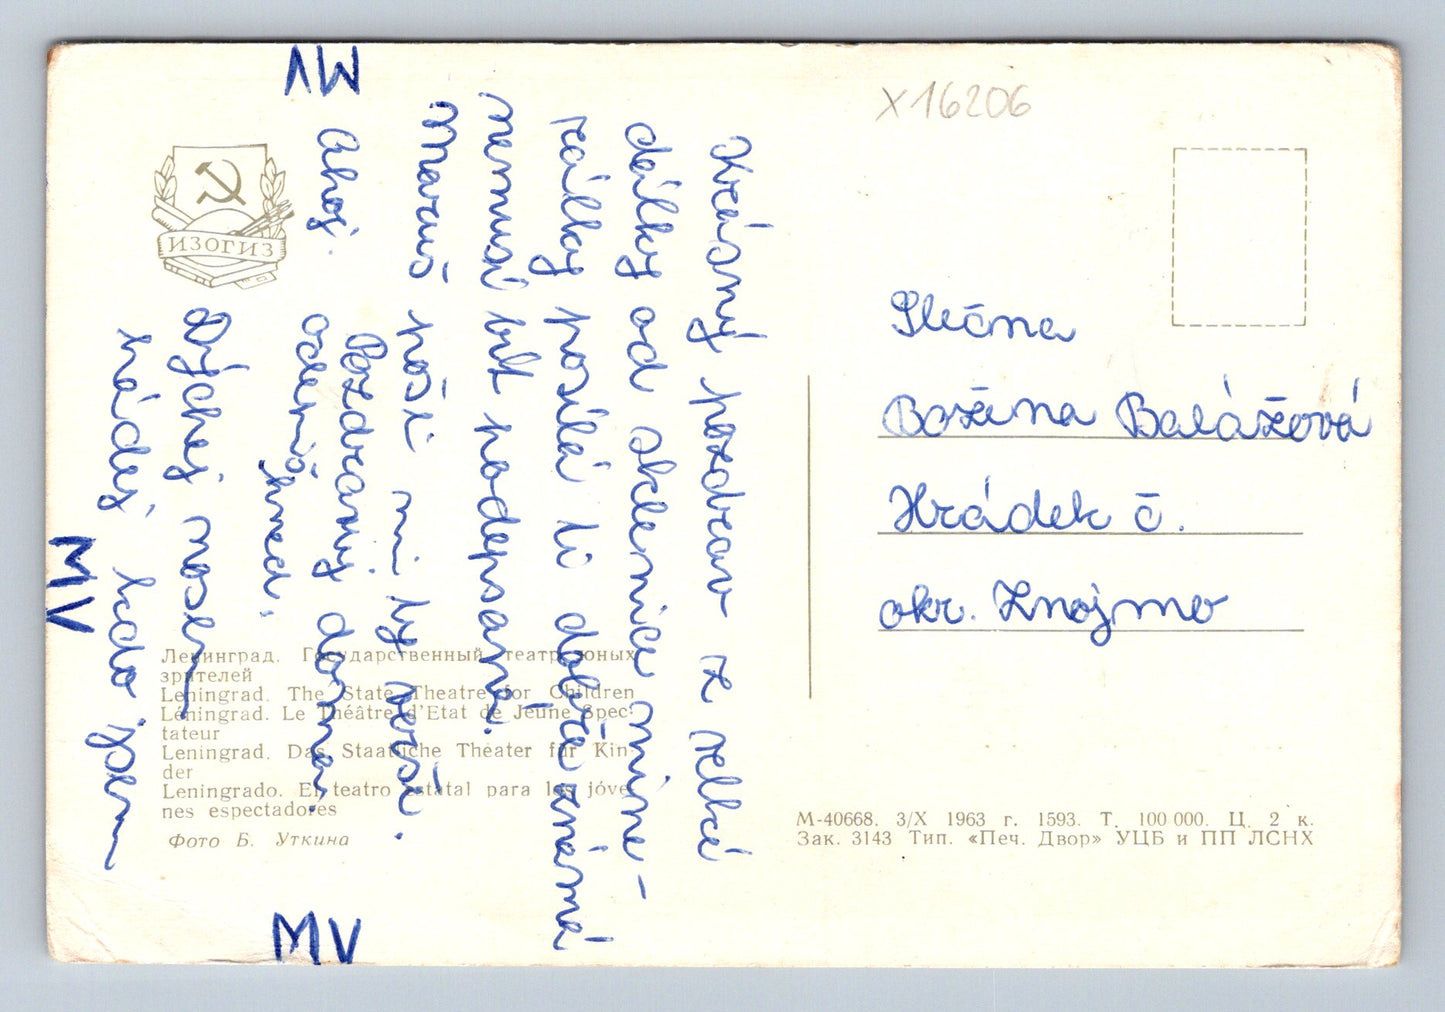 MV
X 16206
ИЗОГИЗ
Krásný pozdrav z velké
dálky od sklenice mine-
rálky posílá ti dobře známá
nemusí být podepsaná.
Marně
píši mi ty verše.
Ahoj.
Pozdravuj doma,
odepiš hned.
Dýchej nosem
hádej kdo jsem
MV
MV
Slečna
Božena Balážová
Hrádek č.
okr. Znojmo
Ленинград. Государственный театр юных
зрителей
Leningrad. The State Theatre for Children
Léningrad. Le Théâtre d'Etat de Jeune Spec-
tateur
Leningrad. Das Staatliche Theater für Kin-
der
Leningrado. El teatro estatal para los jóve-
nes espectadores
Фото Б. Уткина
М-40668. 3/X 1963 г. 1593. Т. 100 000. Ц. 2 к.
Зак. 3143 Тип. «Печ. Двор» УЦБ и ПП ЛСНХ